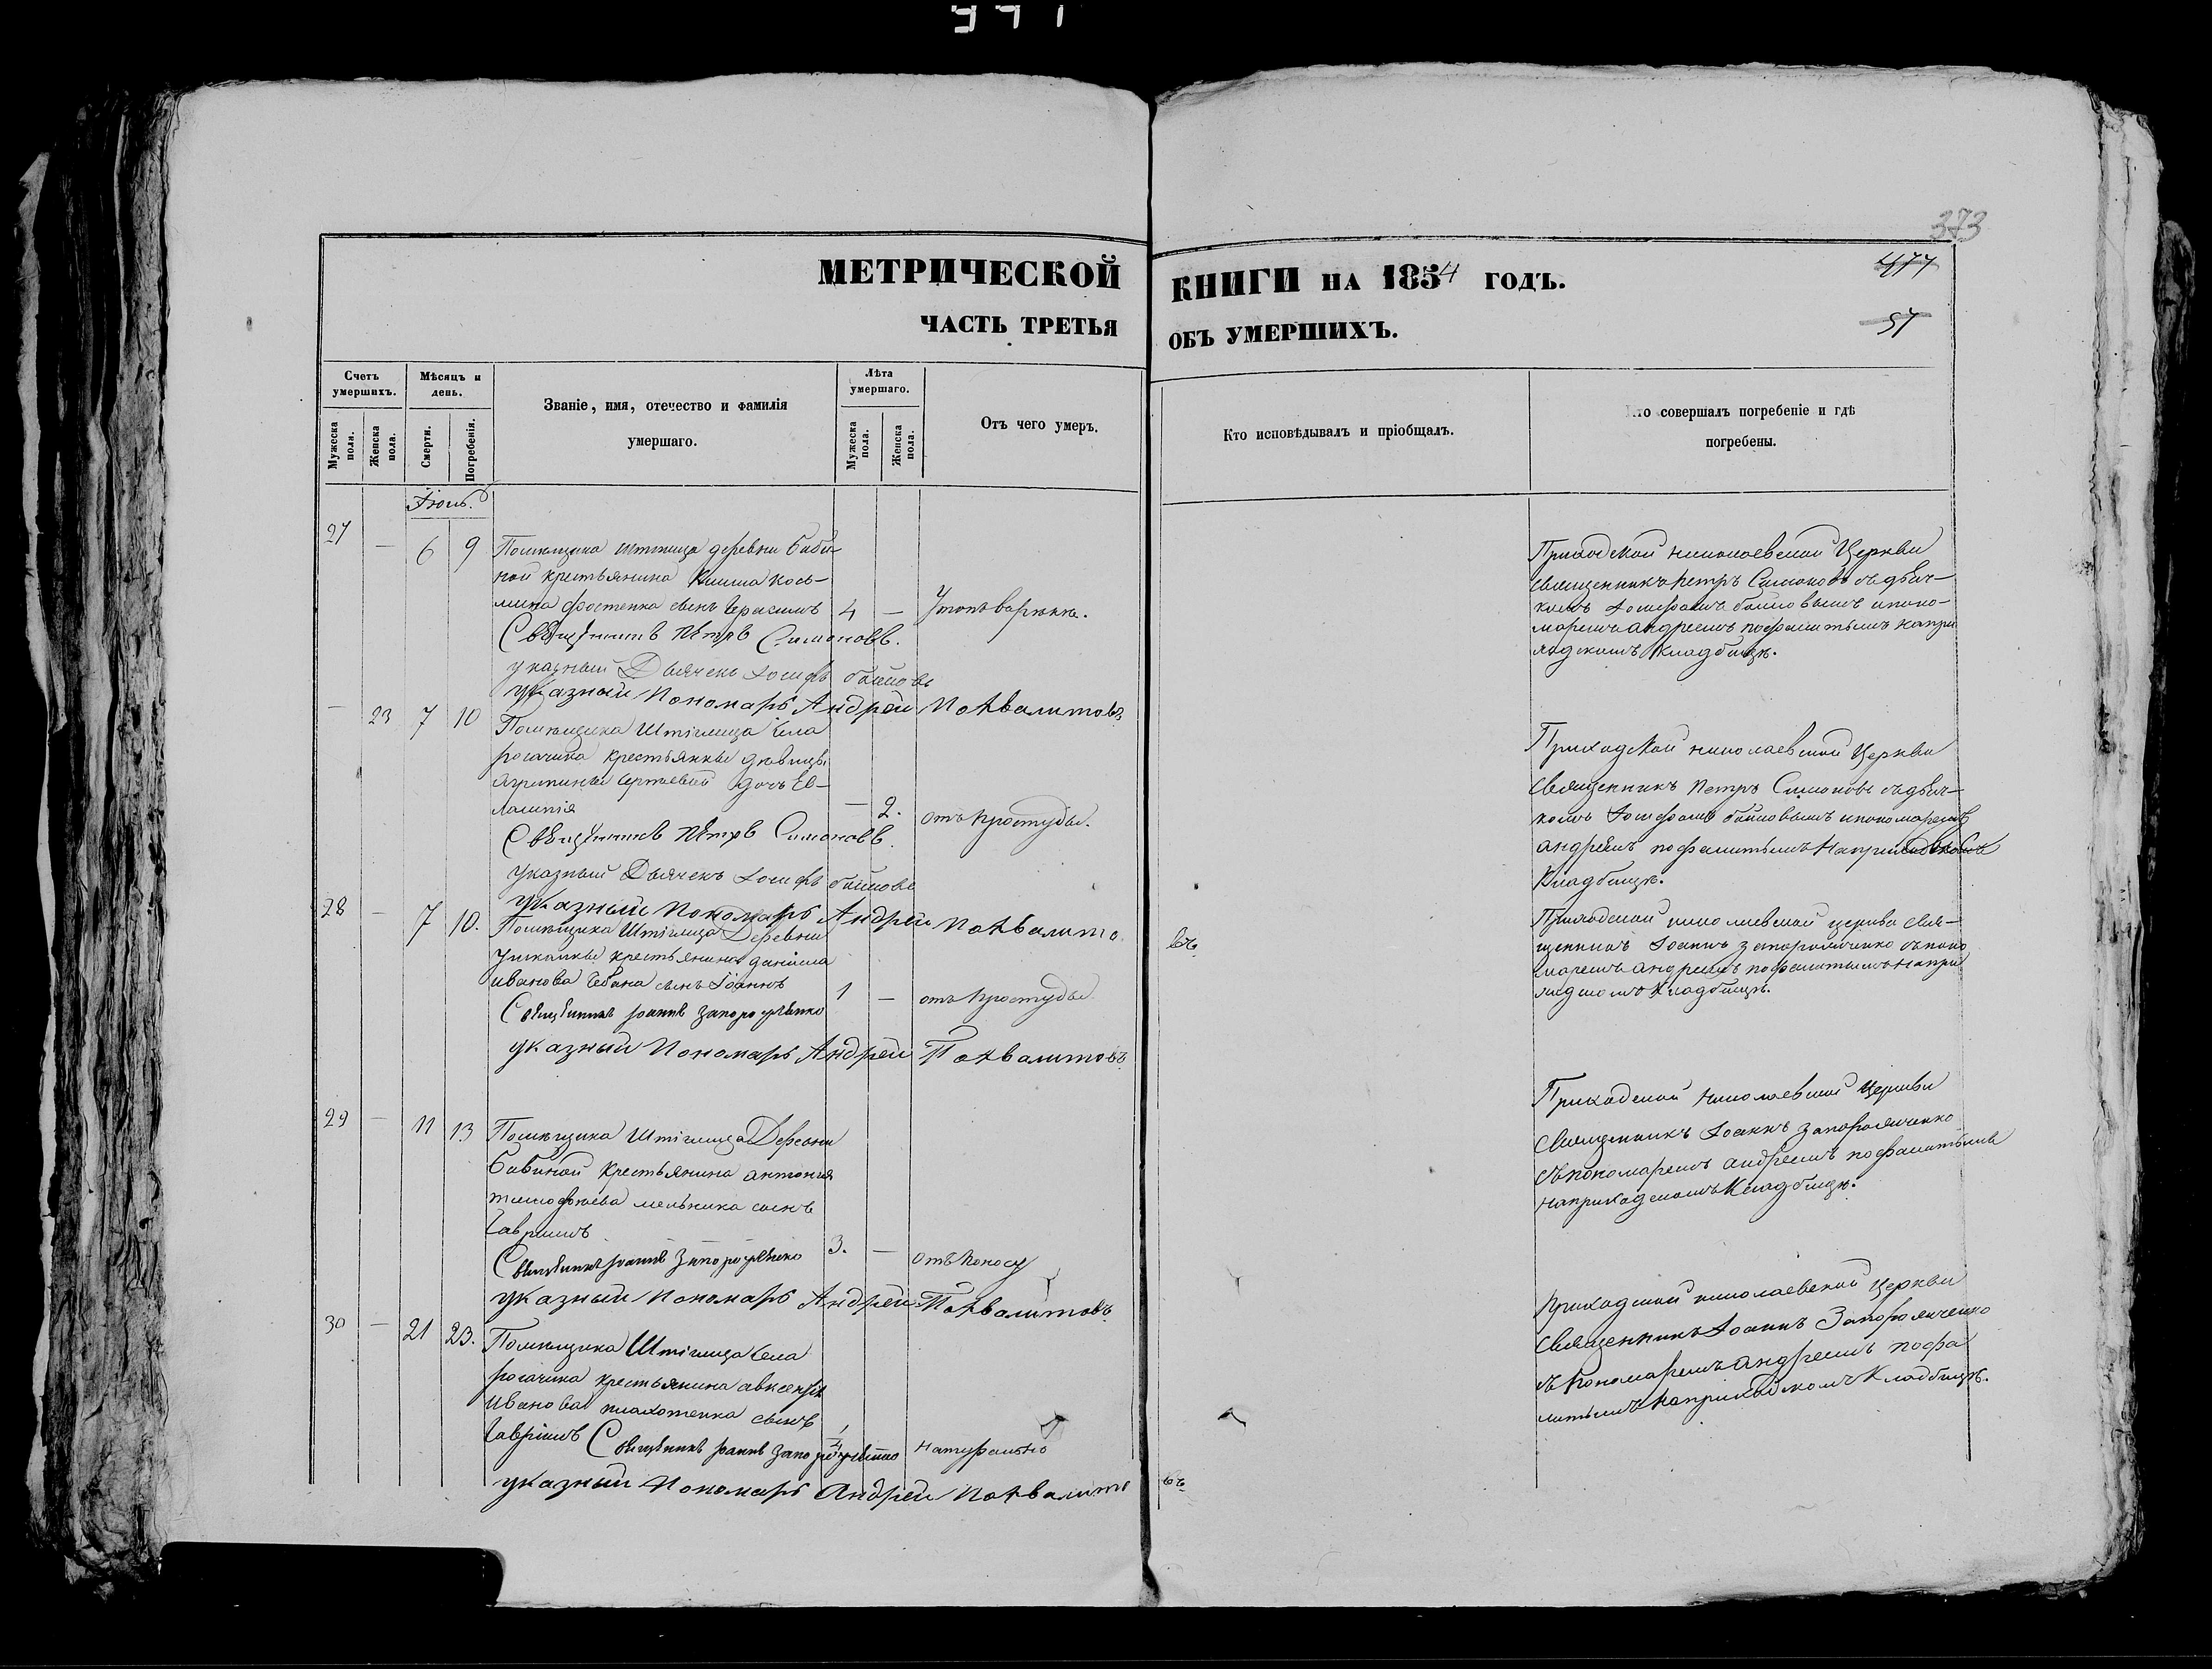 373
МЕТРИЧЕСКОЙ КНИГИ НА 1854 ГОДЪ.
477
ЧАСТЬ ТРЕТЬЯ ОБЪ УМЕРШИХЪ.
57
Счетъ умершихъ.
Мужеска пола.
Женска пола.
Мѣсяцъ и день.
Смерти.
Погребенія.
Званіе, имя, отечество и фамилія умершаго.
Лѣта умершаго.
Мужеска пола.
Женска пола.
Отъ чего умеръ.
Кто исповѣдывалъ и пріобщалъ.
Кто совершалъ погребеніе и гдѣ погребены.
27 — 6 9
Помѣщика Штиглица деревни Баби-
ной крестьянина Косъ-
мина сынъ Герасимъ 4 —
Священникъ Петръ Симоновъ.
указный Дьячекъ Іосифъ
указный Пономарь Андрей Похвалитовъ
Приходской Николаевской Церкви
священникъ Петръ Симоновъ съ дьяч-
комъ Іосифомъ и поно-
маремъ Андреемъ Похвалитымъ на при
ходскомъ Кладбищѣ.
— 23 7 10
Помѣщика Штіглица села
рогачика крестьянки дѣвицы
агрипины дочь Ев-
лампія — 2. отъ простуды.
Священникъ Петръ Симоновъ.
Указный Дьячекъ Іосифъ
указный Пономарь Андрей Похвалито
въ
Приходской Николаевской Церкви
священникъ Петръ Симоновъ съ дьяч-
комъ Іосифомъ и пономаремъ
андреемъ на приходскомъ
Кладбищѣ.
28 — 7 10.
Помѣщика Штіглица Деревни
Ушкалки крестьянина даніила
иванова Чебана сынъ Іоаннъ
1 — отъ простуды.
Священникъ Іоаннъ Запорожченко
указный Пономарь Андрей Похвалитовъ
Приходской николаевской церкви свя-
щенникъ Іоаннъ запорожченко съ поно
маремъ андреемъ на при
ходскомъ Кладбищѣ.
29 — 11 13
Помѣщика Штіглица Деревни
Бабиной Крестьянина антонія
тимофѣева мельника сынъ
Гавріилъ
3. — отъ поносу
Священникъ Іоаннъ Запорожченко
указный Пономарь Андрей Похвалитовъ.
Приходской Николаевской Церкви
священникъ Іоаннъ запорожченко
съ пономаремъ андреемъ
на приходскомъ Кладбищѣ.
30 — 21 23.
Помѣщика Штіглица села
рогачика крестьянина
Иванова сынъ
Гавріилъ натурально
Священникъ Іоаннъ Запорожченко
указный Пономарь Андрей Похвалито
въ
приходской николаевской Церкви
священникъ Іоаннъ Запорожченко
съ пономаремъ андреемъ
на приходскомъ Кладбищѣ.